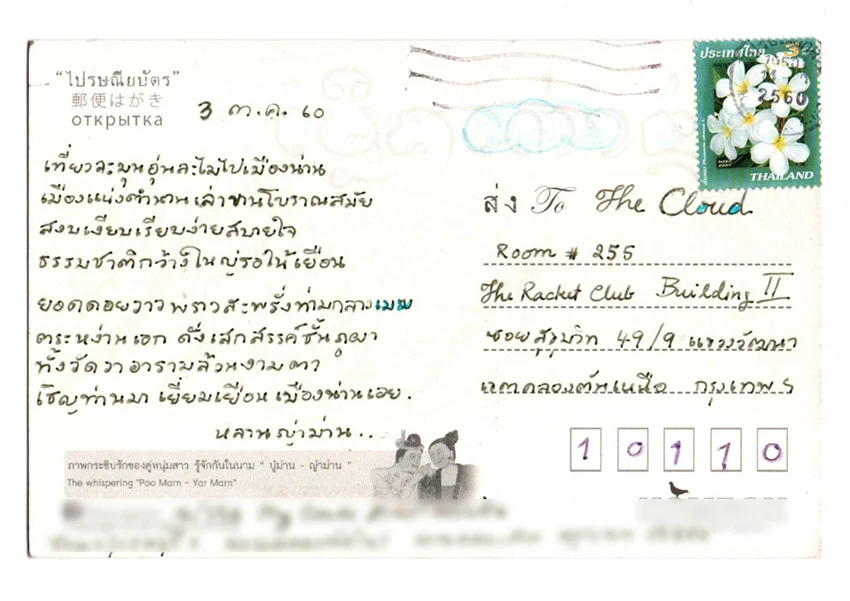 "ไปรษณียบัตร"
郵便はがき
открытка
3 ต.ค. 60
เที่ยวละมุนอุ่นละไมไปเมืองน่าน
เมืองแห่งตำนานเล่าขานโบราณสมัย
สงบเงียบเรียบง่ายสบายใจ
ธรรมชาติกว้างใหญ่รอให้เยือน
ยอดดอยวาวพราวสะพรั่งท่ามกลางเมฆ
ตระหง่านเอก ดั่งเสกสรรค์ชั้นภูผา
ทั้งวัดวาอารามล้วนงามตา
เชิญท่านมา เยี่ยมเยือนเมืองน่านเอย.
หลานญ่าม่าน..
ภาพกระซิบรักของคู่หนุ่มสาว รู้จักกันในนาม " ปู่ม่าน - ญ่าม่าน "
The whispering "Poo Marn - Yar Marn"
ประเทศไทย 3
2560
THAILAND
ส่ง To The Cloud
Room # 255
The Racket Club Building II
ซอยสุขุมวิท 49/9 แขวงวัฒนา
เขตคลองตันเหนือ กรุงเทพฯ
10110